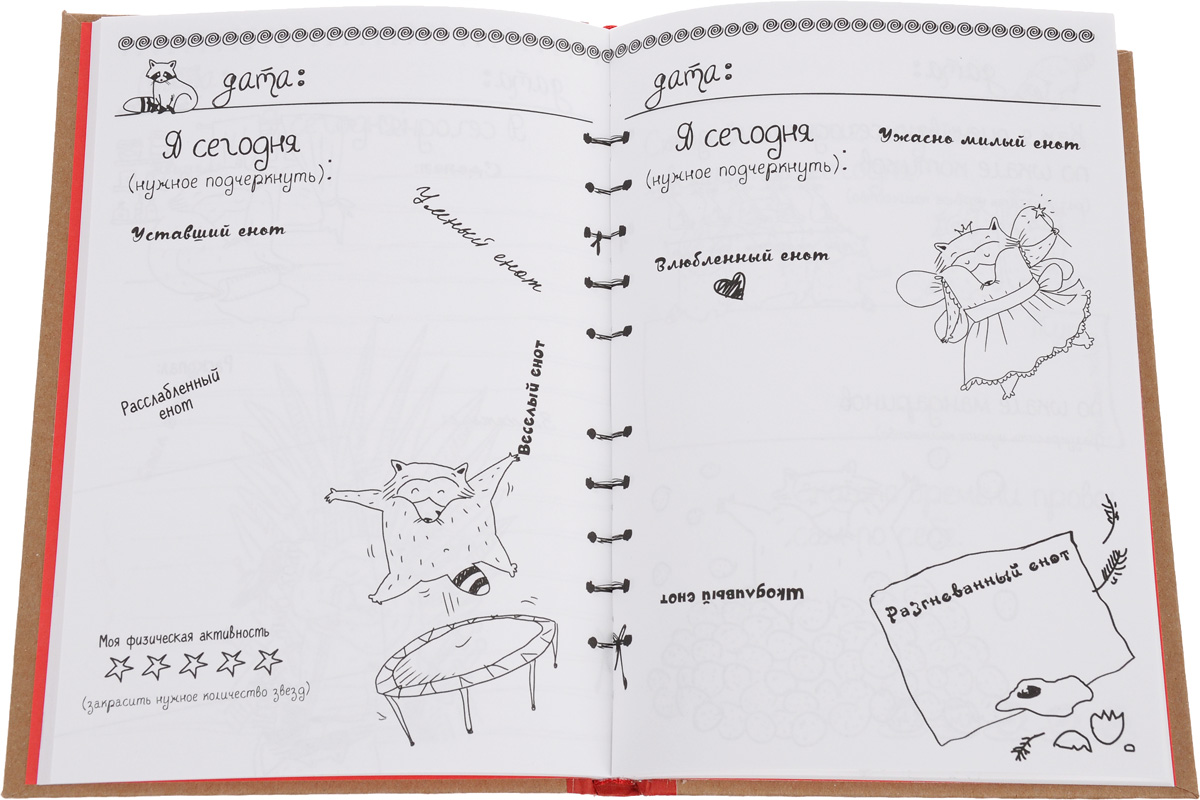 дата:
Я сегодня
(нужное подчеркнуть):
Уставший енот
Умный енот
Расслабленный
енот
Веселый енот
Моя физическая активность
(закрасить нужное количество звезд)
дата:
Я сегодня
(нужное подчеркнуть):
Ужасно милый енот
Влюбленный енот
Шкодливый енот
Разгневанный енот